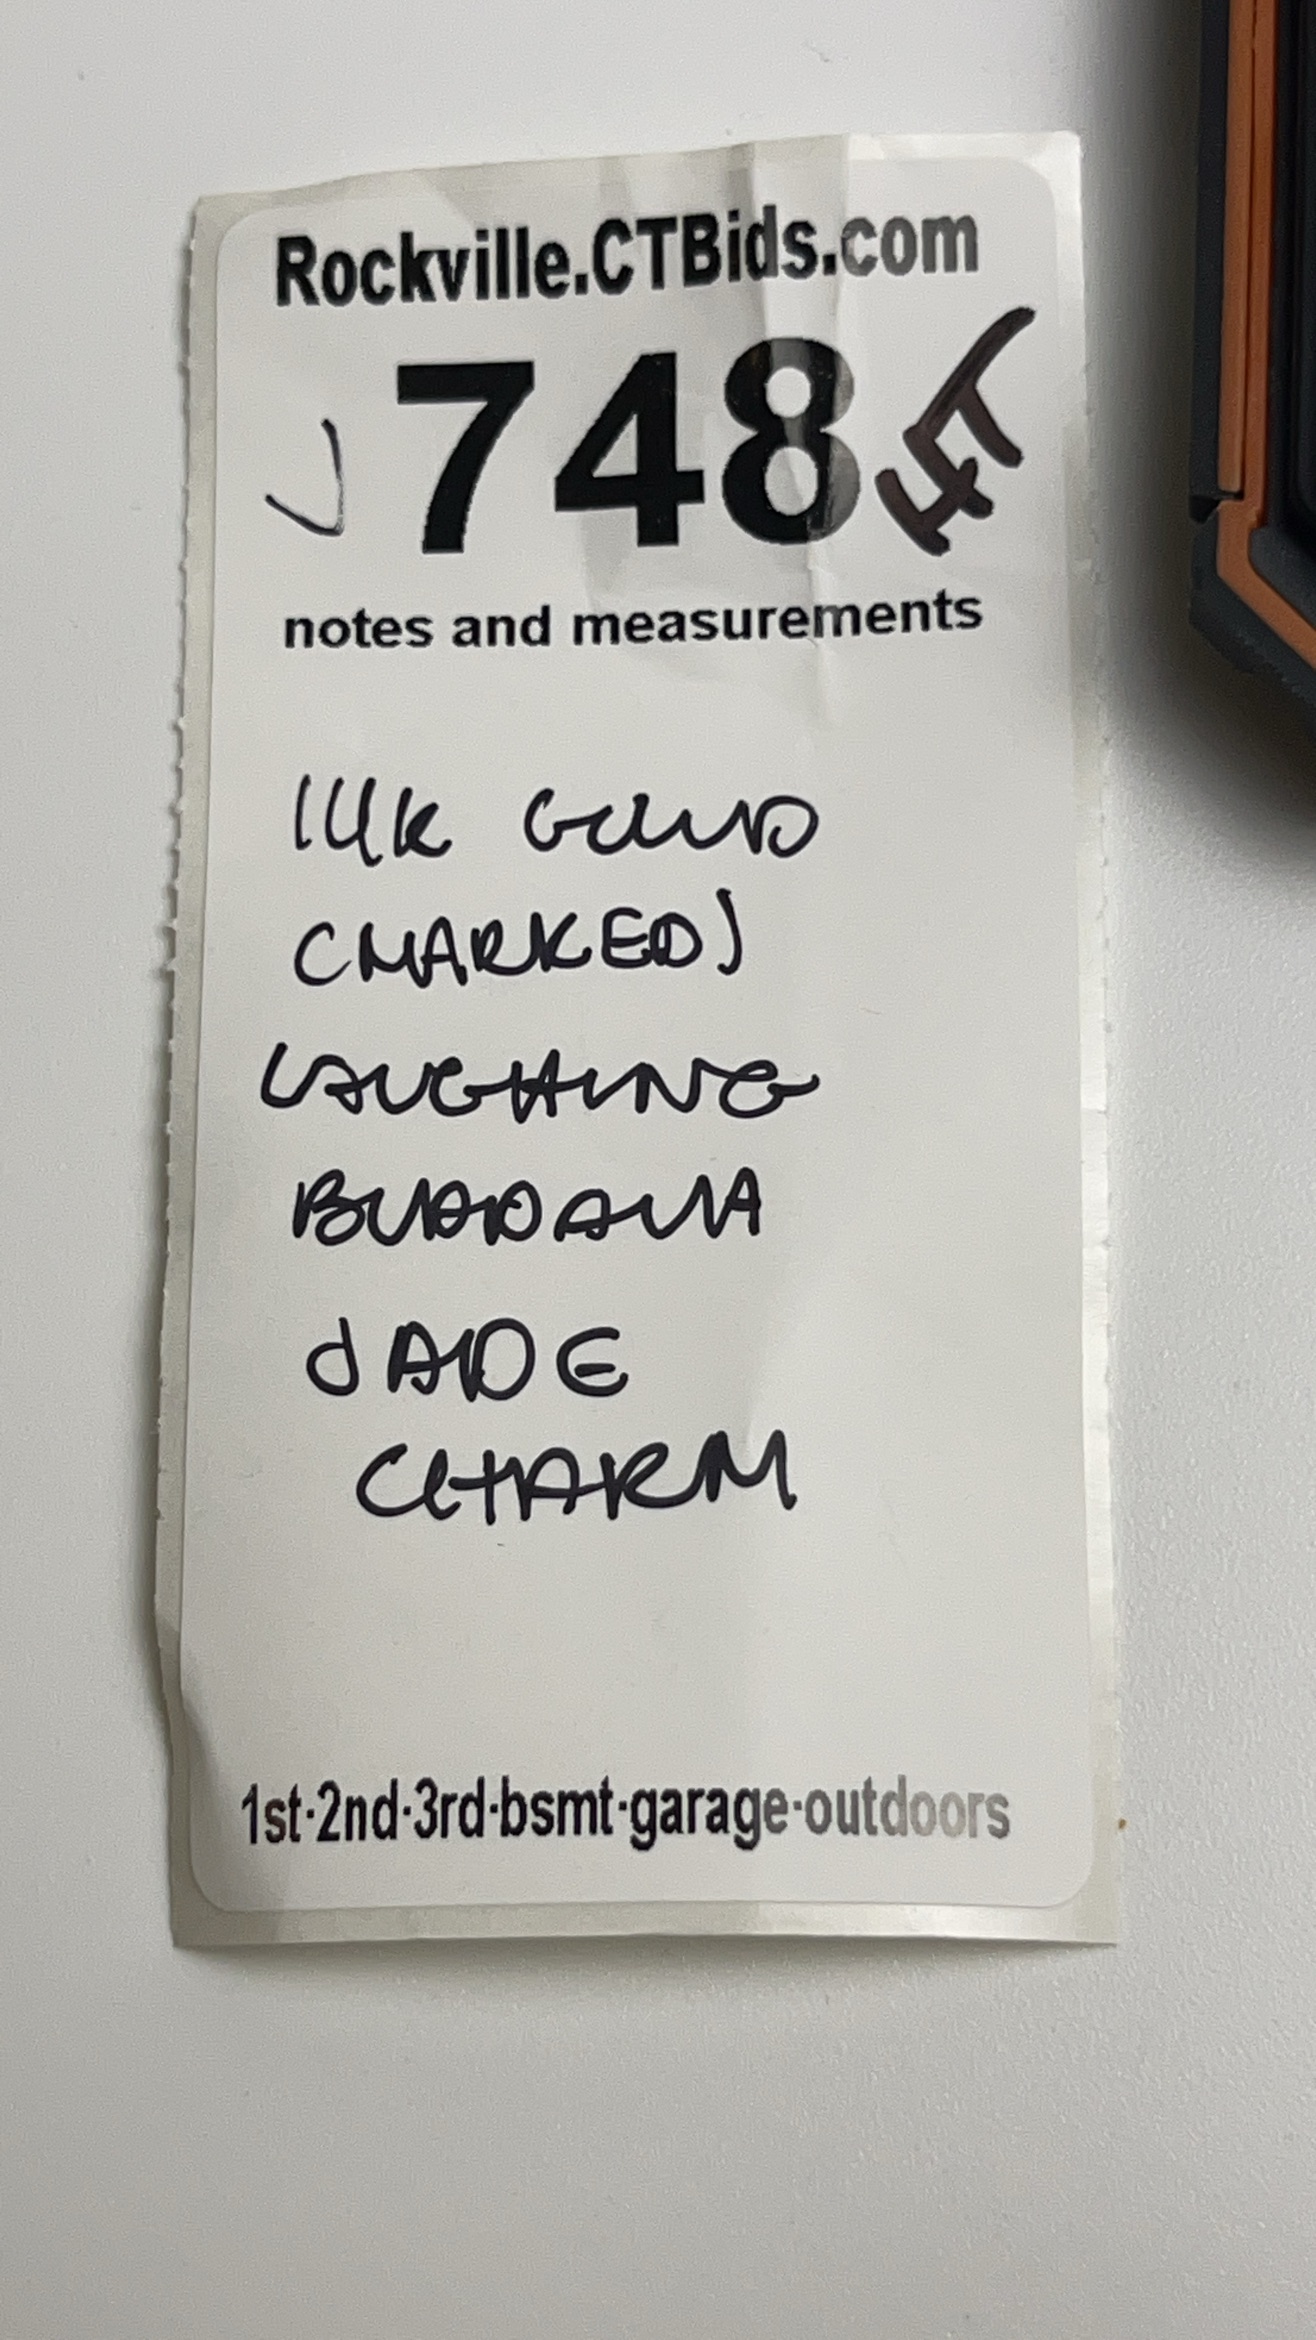 Rockville.CTBids.com
748
notes and measurements
14K GOLD
(MARKED)
LAUGHING
BUDDAHA
JADE
CHARM
1st·2nd·3rd·bsmt·garage·outdoors